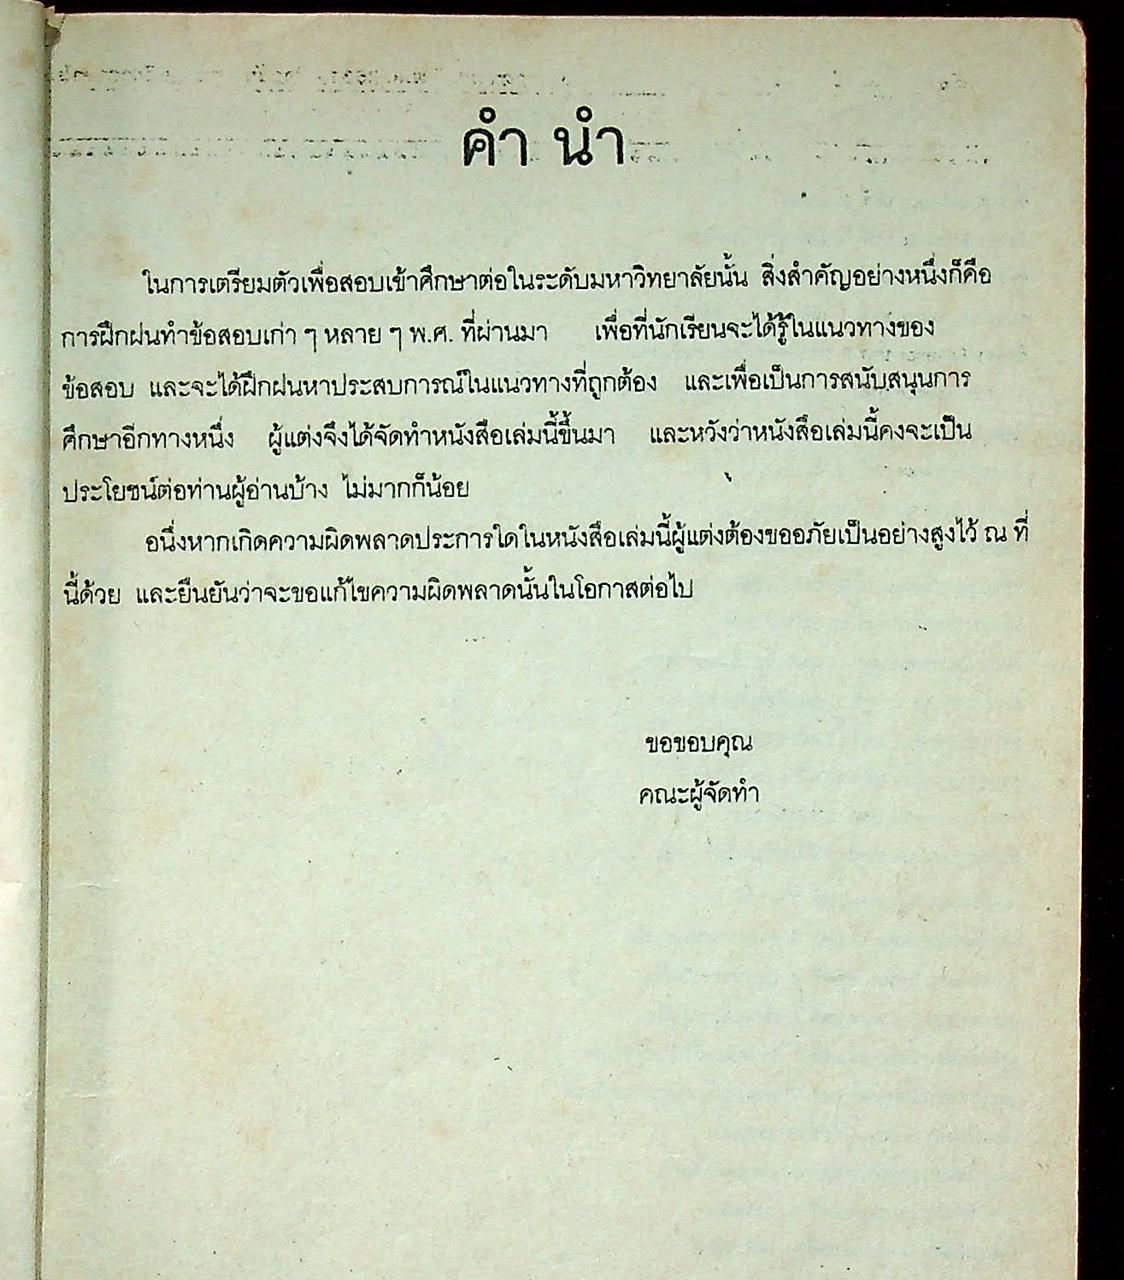 คำ นำ
ในการเตรียมตัวเพื่อสอบเข้าศึกษาต่อในระดับมหาวิทยาลัยนั้น สิ่งสำคัญอย่างหนึ่งก็คือ
การฝึกฝนทำข้อสอบเก่า ๆ หลาย ๆ พ.ศ. ที่ผ่านมา เพื่อที่นักเรียนจะได้รู้ในแนวทางของ
ข้อสอบ และจะได้ฝึกฝนหาประสบการณ์ในแนวทางที่ถูกต้อง และเพื่อเป็นการสนับสนุนการ
ศึกษาอีกทางหนึ่ง ผู้แต่งจึงได้จัดทำหนังสือเล่มนี้ขึ้นมา และหวังว่าหนังสือเล่มนี้คงจะเป็น
ประโยชน์ต่อท่านผู้อ่านบ้าง ไม่มากก็น้อย
อนึ่งหากเกิดความผิดพลาดประการใดในหนังสือเล่มนี้ผู้แต่งต้องขออภัยเป็นอย่างสูงไว้ ณ ที่
นี้ด้วย และยืนยันว่าจะขอแก้ไขความผิดพลาดนั้นในโอกาสต่อไป
ขอขอบคุณ
คณะผู้จัดทำ